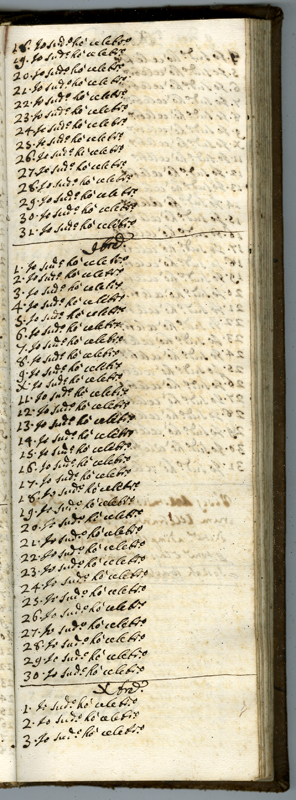 18. Io sud.o hò celebr.o
19. Io sud.o hò celebr.o
20. Io sud.o hò celebr.o
21. Io sud.o hò celebr.o
22. Io sud.o hò celebr.o
23. Io sud.o hò celebr.o
24. Io sud.o hò celebr.o
25. Io sud.o hò celebr.o
26. Io sud.o hò celebr.o
27. Io sud.o hò celebr.o
28. Io sud.o hò celebr.o
29. Io sud.o hò celebr.o
30. Io sud.o hò celebr.o
31. Io sud.o hò celebr.o
9bre.
1. Io sud.o hò celebr.o
2. Io sud.o hò celebr.o
3. Io sud.o hò celebr.o
4. Io sud.o hò celebr.o
5. Io sud.o hò celebr.o
6. Io sud.o hò celebr.o
7. Io sud.o hò celebr.o
8. Io sud.o hò celebr.o
9. Io sud.o hò celebr.o
X. Io sud.o hò celebr.o
11. Io sud.o hò celebr.o
12. Io sud.o hò celebr.o
13. Io sud.o hò celebr.o
14. Io sud.o hò celebr.o
15. Io sud.o hò celebr.o
16. Io sud.o hò celebr.o
17. Io sud.o hò celebr.o
18. Io sud.o hò celebr.o
19. Io sud.o hò celebr.o
20. Io sud.o hò celebr.o
21. Io sud.o hò celebr.o
22. Io sud.o hò celebr.o
23. Io sud.o hò celebr.o
24. Io sud.o hò celebr.o
25. Io sud.o hò celebr.o
26. Io sud.o hò celebr.o
27. Io sud.o hò celebr.o
28. Io sud.o hò celebr.o
29. Io sud.o hò celebr.o
30. Io sud.o hò celebr.o
Xbre.
1. Io sud.o hò celebr.o
2. Io sud.o hò celebr.o
3. Io sud.o hò celebr.o